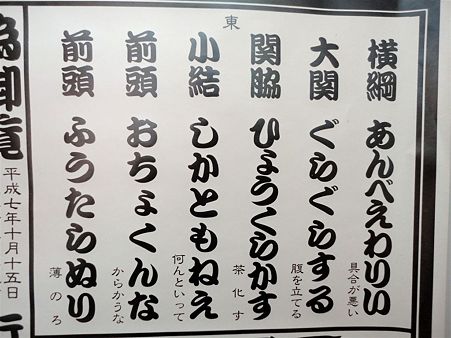 東
横綱 あんべえわりい 具合が悪い
大関 ぐらぐらする 腹を立てる
関脇 ひょうくらかす 茶化す
小結 しかともねえ 何んといって
前頭 おちょくんな からかうな
前頭 ふうたらぬり 薄のろ
平成七年十月十五日